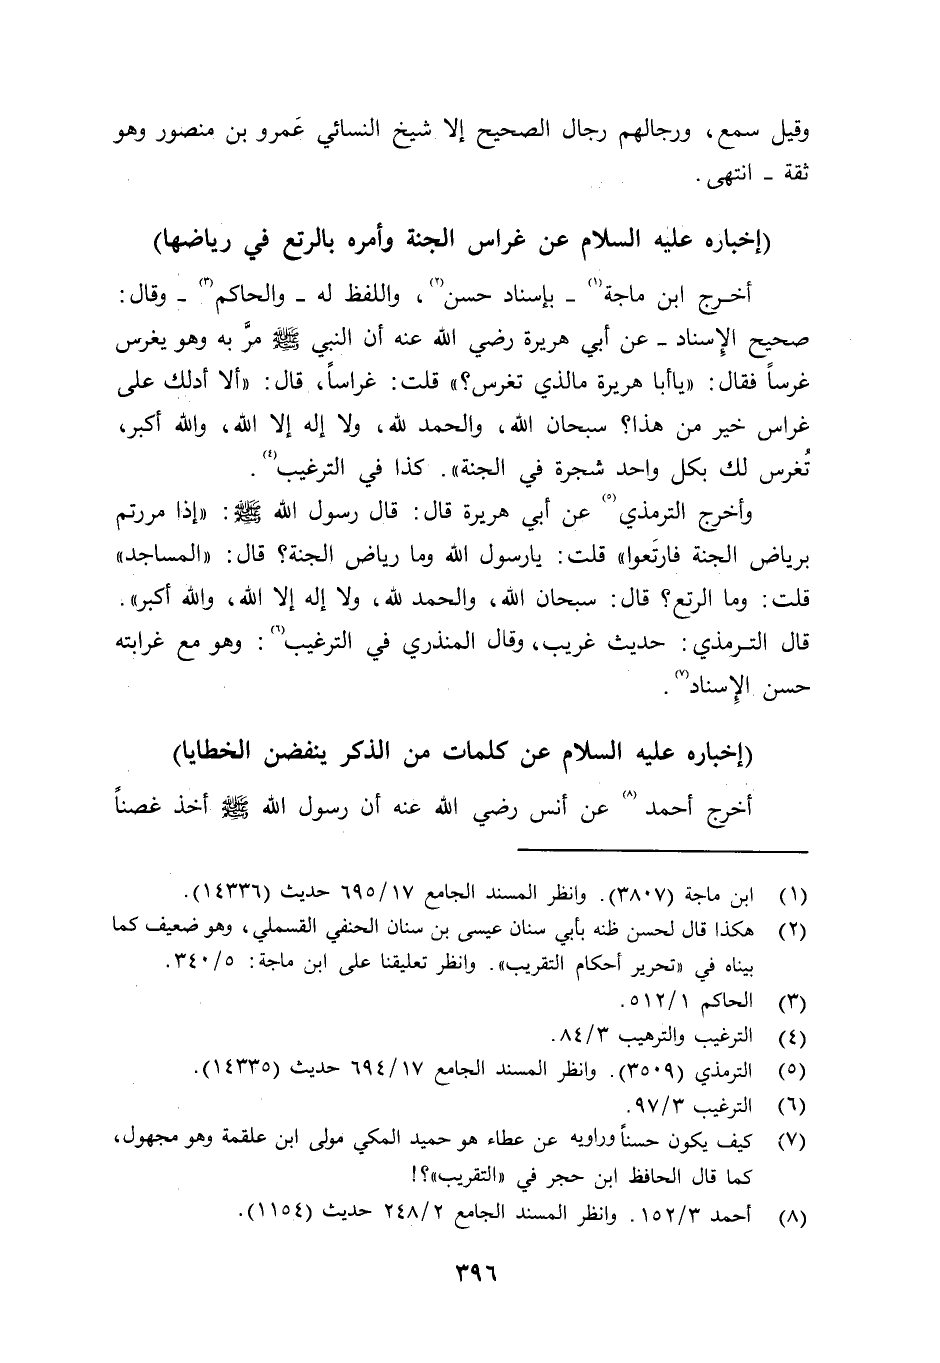 وقيل سمع، ورجالهم رجال الصحيح إلا شيخ النسائي عَمرو بن منصور وهو
ثقة ـ انتهى.
(إخباره عليه السلام عن غراس الجنة وأمره بالرتع في رياضها)
أخرج ابن ماجة(١) ـ بإسناد حسن(٢)، واللفظ له ـ والحاكم(٣) ـ وقال:
صحيح الإِسناد ـ عن أبي هريرة رضي الله عنه أن النبي ﷺ مرَّ به وهو يغرس
غرساً فقال: «ياأبا هريرة مالذي تغرس؟» قلت: غراساً، قال: «ألا أدلك على
غراس خير من هذا؟ سبحان الله، والحمد لله، ولا إله إلا الله، والله أكبر،
تُغرس لك بكل واحد شجرة في الجنة». كذا في الترغيب(٤).
وأخرج الترمذي(٥) عن أبي هريرة قال: قال رسول الله ﷺ: «إذا مررتم
برياض الجنة فارتَعوا» قلت: يارسول الله وما رياض الجنة؟ قال: «المساجد»
قلت: وما الرتع؟ قال: سبحان الله، والحمد لله، ولا إله إلا الله، والله أكبر».
قال الترمذي: حديث غريب، وقال المنذري في الترغيب(٦): وهو مع غرابته
حسن الإِسناد(٧).
(إخباره عليه السلام عن كلمات من الذكر ينفضن الخطايا)
أخرج أحمد(٨) عن أنس رضي الله عنه أن رسول الله ﷺ أخذ غصناً
(١) ابن ماجة (٣٨٠٧). وانظر المسند الجامع ٦٩٥/١٧ حديث (١٤٣٣٦).
(٢) هكذا قال لحسن ظنه بأبي سنان عيسى بن سنان الحنفي القسملي، وهو ضعيف كما
بيناه في «تحرير أحكام التقريب». وانظر تعليقنا على ابن ماجة: ٣٤٠/٥.
(٣) الحاكم ٥١٢/١.
(٤) الترغيب والترهيب ٨٤/٣.
(٥) الترمذي (٣٥٠٩). وانظر المسند الجامع ٦٩٤/١٧ حديث (١٤٣٣٥).
(٦) الترغيب ٩٧/٣.
(٧) كيف يكون حسناً وراويه عن عطاء هو حميد المكي مولى ابن علقمة وهو مجهول،
كما قال الحافظ ابن حجر في «التقريب»؟!
(٨) أحمد ١٥٢/٣. وانظر المسند الجامع ٢٤٨/٢ حديث (١١٥٤).
٣٩٦